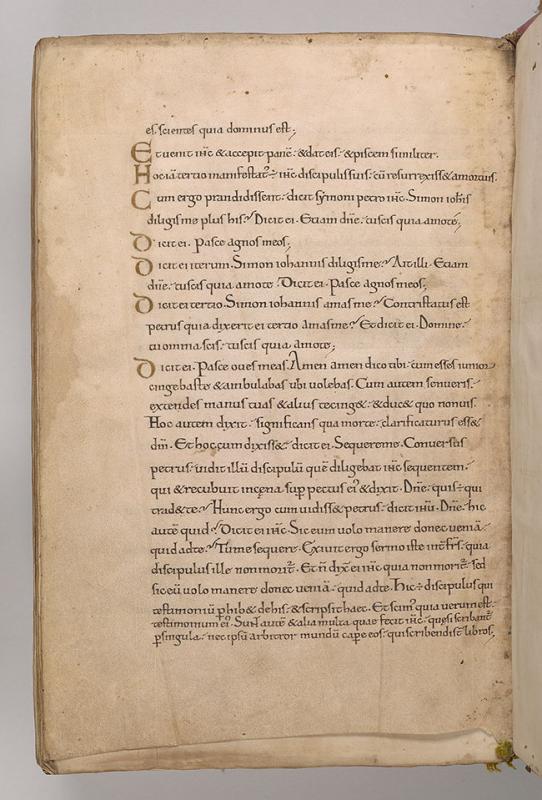 es. scientes quia dominus est;
Et venit ihc & accepit panē. & dat eis. & piscem similiter.
Hoc iā tertio manifestat' ÷ ihc discipulis suis. cū resurrexiss& amortuis.
Cum ergo prandidissent. dicit symoni petro ihc. Simon iohīs
diligis me plus his? Dicit ei. Etiam dn̄e. tu scis quia amo te;
Dicit ei. Pasce agnos meos;
Dicit ei iterum. Simon iohannis diligis me? Ait illi. Etiam
dn̄e. tu scis quia amo te. Dicit ei. Pasce agnos meos;
Dicit ei tertio. Simon iohannis amas me? Contristatus est
petrus quia dixerit ei tertio amas me? Et dicit ei. Domine
tu omnia scis. tu scis quia amo te;
Dicit ei. Pasce oves meas. Amen amen dico tibi. cum esses iunior
cingebas te & ambulabas ubi volebas. Cum autem senueris.
extendes manus tuas & alius te cing&. & duc& quo non uis.
Hoc autem dixit. significans qua morte clarificaturus ess&
dm̄. Et hoc cum dixiss&. dicit ei. Sequere me. Conversus
petrus. uidit illū discipulū quē diligebat ihc sequentem.
qui & recubuit in cęna sup pectus ei' & dixit. Dn̄e. quis ÷ qui
trad& te? Hunc ergo cum uidiss& petrus. dicit ihū. Dn̄e. hic
autē quid? Dicit ei ihc. Sic eum volo manere donec veniā.
quid ad te? Tu me sequere. Exivit ergo sermo iste int̄ fr̄s. quia
discipulus ille non morit̄. Et n̄ dix̄ ei ihc quia non moriet̄. sed
sic eū volo manere donec veniā. quid ad te. Hic ÷ discipulus qui
testimoniū phib& de his. & scripsit haec. Et scim' quia verum est
testimonium ei'. Sunt autē & alia multa quae fecit ihc. quę si scribant̄
p singula. nec ipsū arbitror mundū cape eos. qui scribendi st̄ libros;